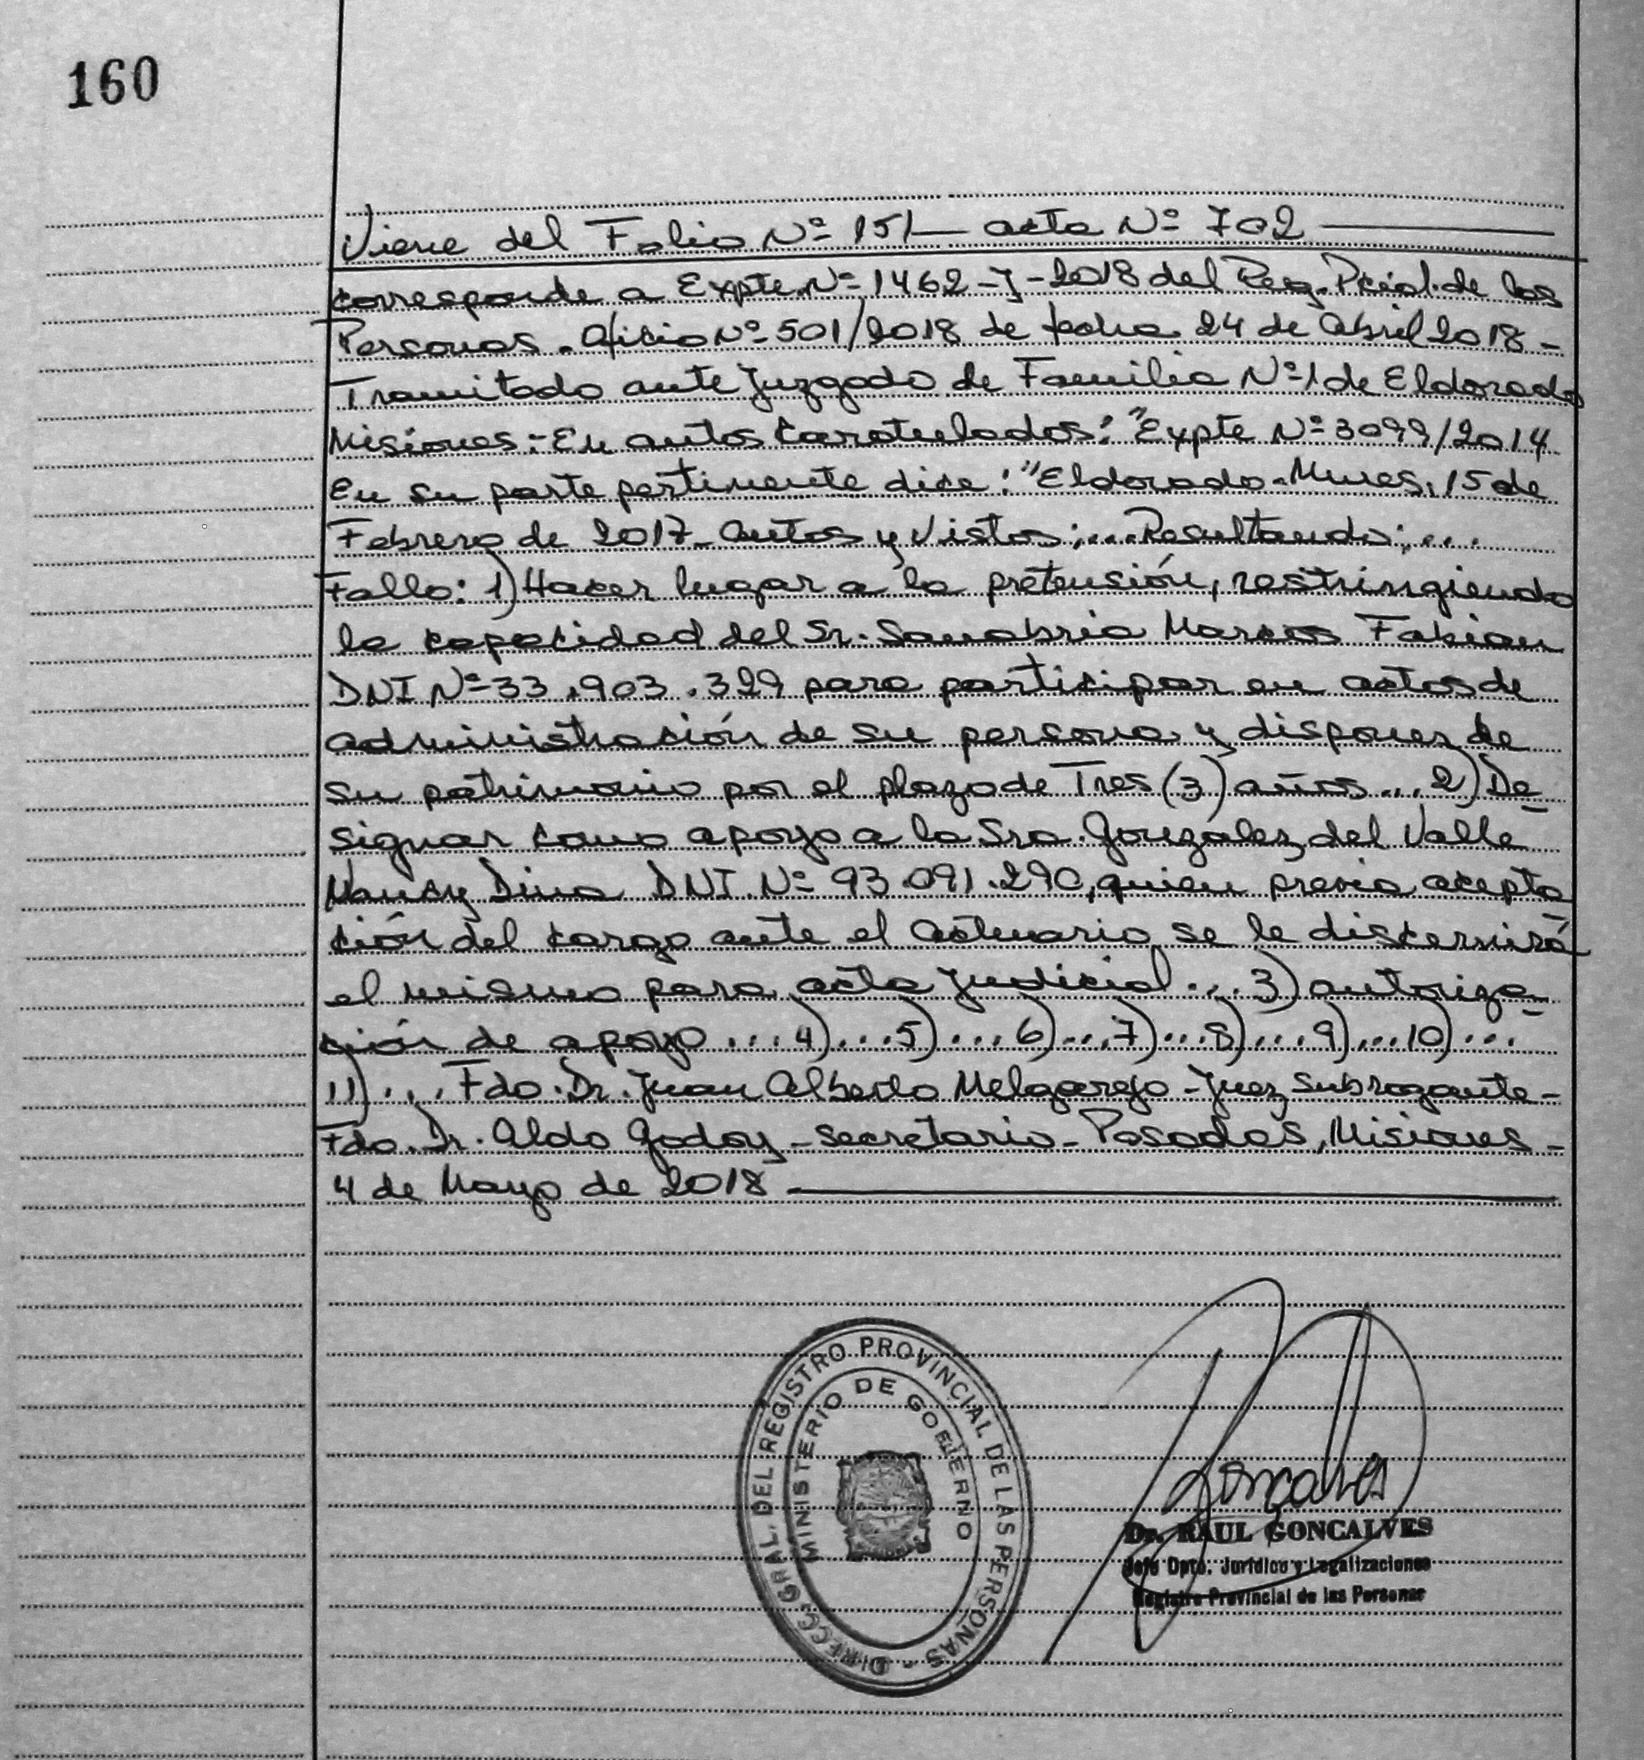 160
Viene del Folio Nº 151 — acta Nº 702 —
corresponde a Expte. Nº 1462-J-2018 del Reg. Pcial. de los
Personas. Oficio Nº 501/2018 de fecha 24 de abril 2018 -
Tramitado ante Juzgado de Familia Nº 1 de Eldorado
Misiones:- En autos Caratulados: "Expte Nº 3099/2014
En su parte pertinente dice: "Eldorado. Mnes, 15 de
Febrero de 2017_ autos y vistos;... Resultando;...
Fallo: 1) Hacer lugar a la pretensión, restringiendo
la capacidad del Sr. Sanabria Marcos Fabian
DNI Nº 33.903.329 para participar en actos de
administración de su persona y disponer de
su patrimonio por el plazo de Tres (3) años ... 2) De
signar como apoyo a la Sra. Gonzalez del Valle
Nancy Dina DNI. Nº 93.091.290, quien previa acepta
ción del cargo ante el actuario se le discernirá
el mismo para acta judicial ... 3) autoriza-
ción de apoyo ... 4) ... 5) ... 6) ... 7) ... 8) ... 9) ... 10) ...
11) ... Fdo. Dr. Juan Alberto Melgarejo - Juez Subrogante -
Fdo. Dr. Aldo Godoy - secretario - Posadas, Misiones -
4 de Mayo de 2018 —
DIRECC. GRAL. DEL REGISTRO PROVINCIAL DE LAS PERSONAS -
MINISTERIO DE GOBIERNO
Goncalves
Dr. RAUL GONCALVES
Jefe Dpto. Jurídico y Legalizaciones
Registro Provincial de las Personas